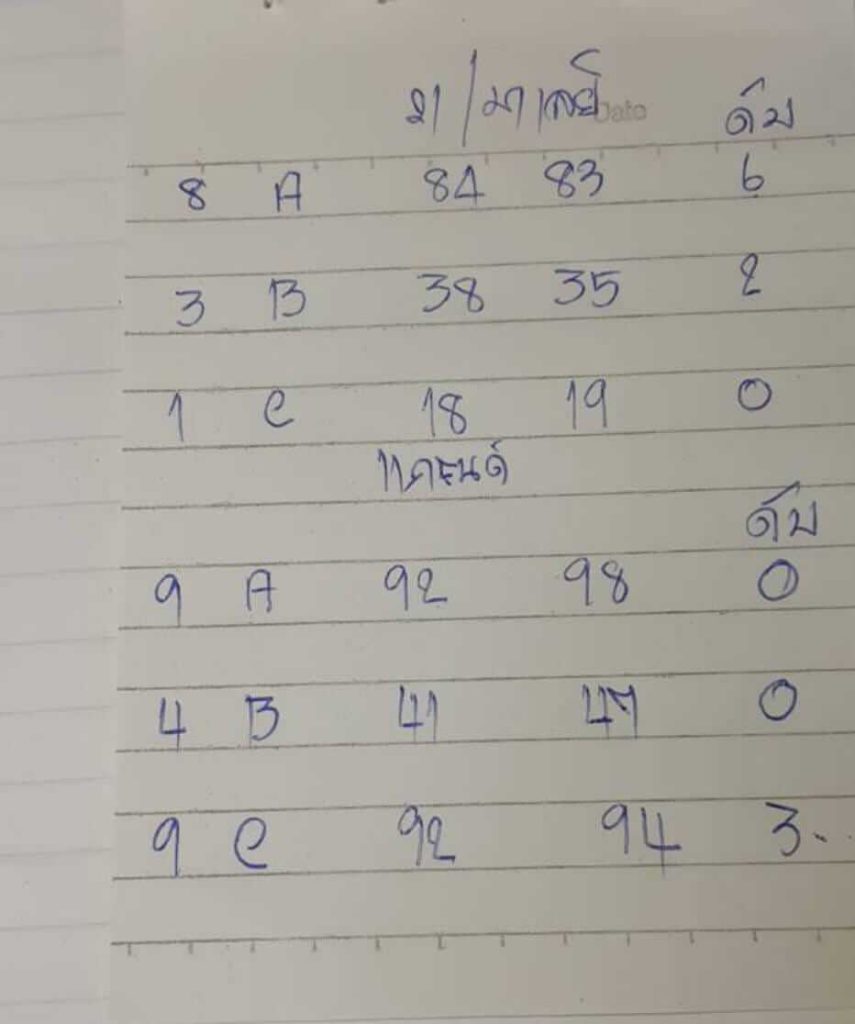 ฮา/มาเลย์ ดับ
8 A 84 83 6
3 B 38 35 2
1 C 18 19 0
ดับ
9 A 92 98 0
4 B 41 47 0
9 C 92 94 3